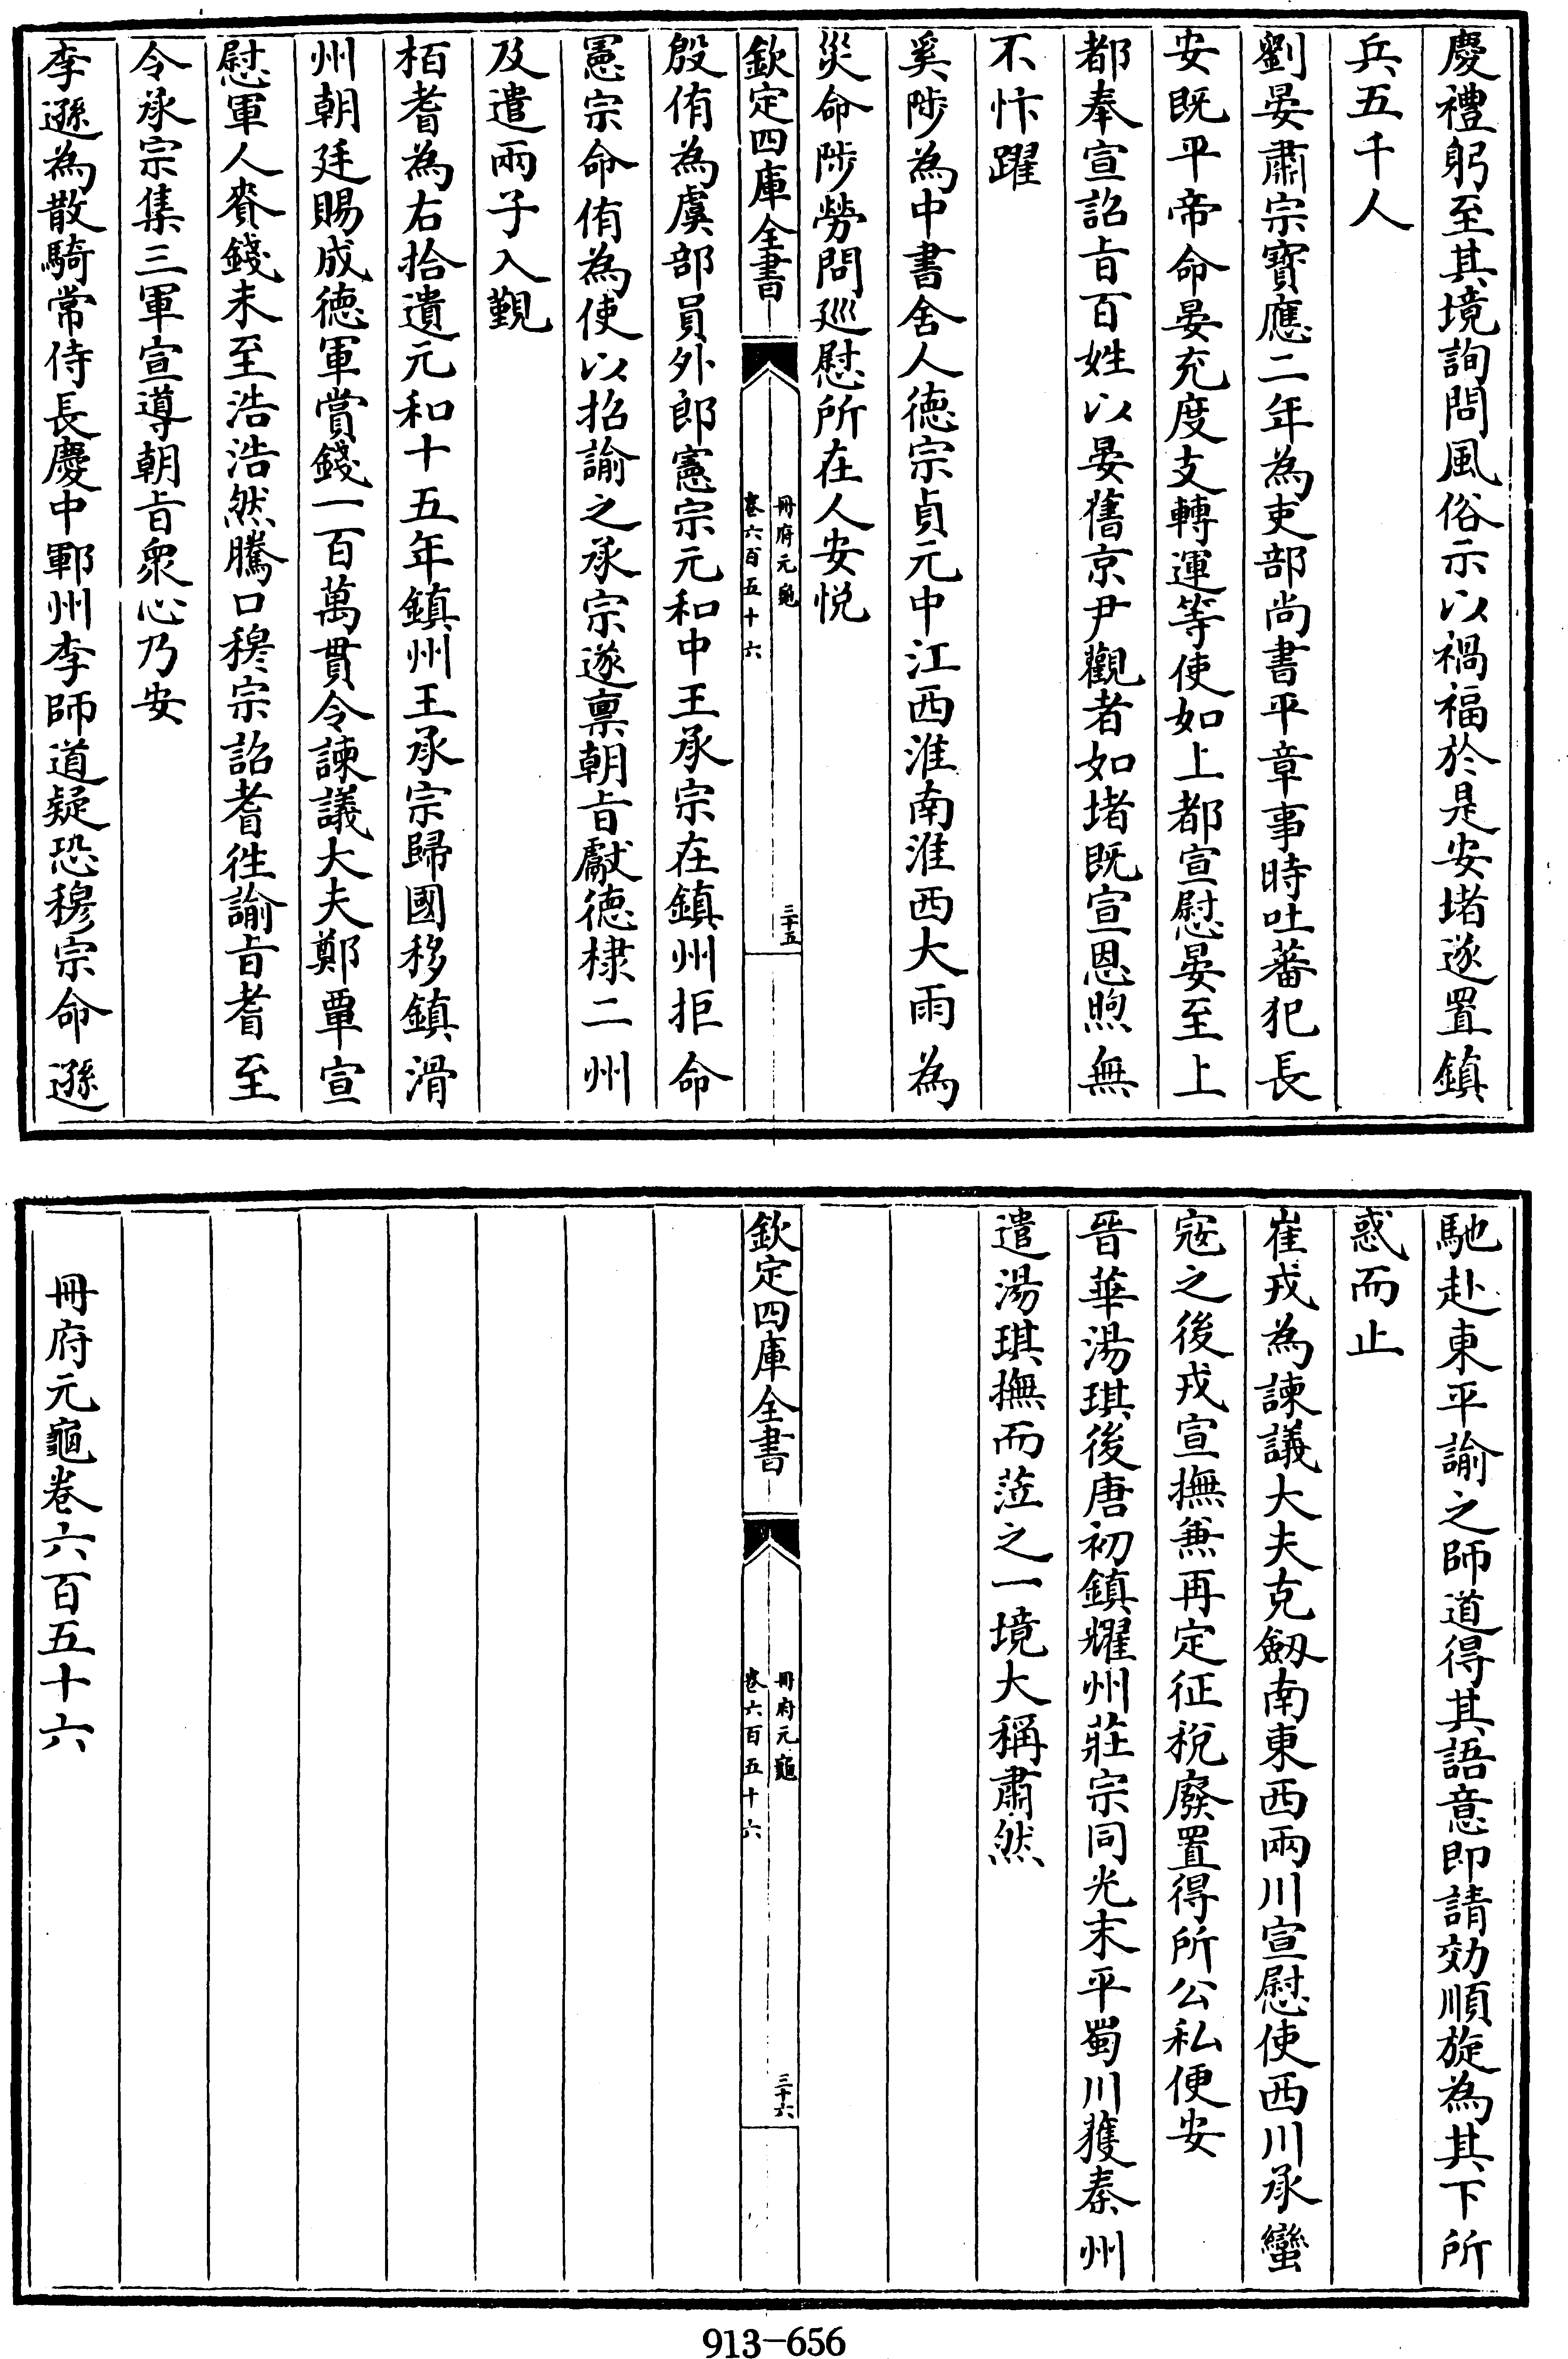 慶禮躬至其境詢問風俗示以禍福於是安堵遂置鎮
兵五千人
劉晏肅宗寳應二年為吏部尚書平章事時吐蕃犯長
安既平帝命晏充度支轉運等使如上都宣慰晏至上
都奉宣詔㫖百姓以晏舊京尹觀者如堵既宣恩煦無
不忭躍
奚陟為中書舍人徳宗貞元中江西淮南淮西大雨為
災命陟勞問廵慰所在人安悦
欽定四庫全書
冊府元龜
卷六百五十六
三十五
殷侑為虞部員外郎憲宗元和中王承宗在鎮州拒命
憲宗命侑為使以招諭之承宗遂禀朝㫖獻徳棣二州
及遣兩子入覲
栢耆為右拾遺元和十五年鎮州王承宗歸國移鎮滑
州朝廷賜成徳軍賞錢一百萬貫令諫議大夫鄭覃宣
慰軍人賚錢未至浩浩然騰口穆宗詔耆徃諭㫖耆至
令承宗集三軍宣導朝㫖衆心乃安
李遜為散騎常侍長慶中鄆州李師道疑恐穆宗命遜
馳赴東平諭之師道得其語意即請効順旋為其下所
惑而止
崔戎為諫議大夫克劔南東西兩川宣慰使西川承蠻
寇之後戎宣撫兼再定征稅廢置得所公私便安
晉華湯琪後唐初鎮耀州莊宗同光末平蜀川獲秦州
遣湯琪撫而蒞之一境大稱肅然
欽定四庫全書
冊府元龜
卷六百五十六
三十六
冊府元龜卷六百五十六
913-656